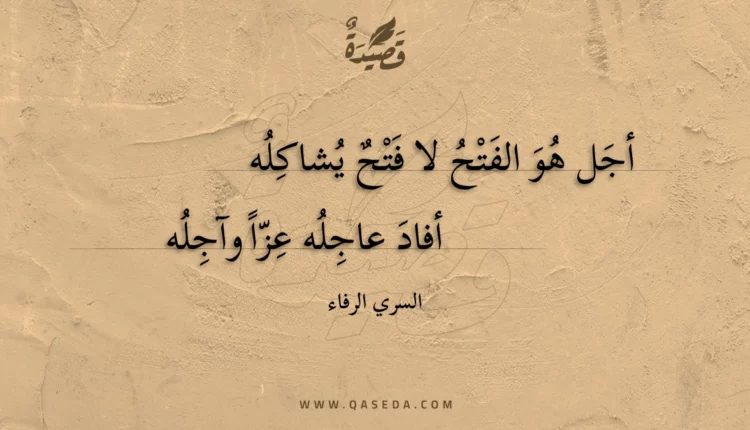 قَصِيدَةٌ
أجَل هُوَ الفَتْحُ لا فَتْحٌ يُشاكِلُه
أفادَ عاجِلُه عِزّاً وآجِلُه
السري الرفاء
WWW.QASEDA.COM